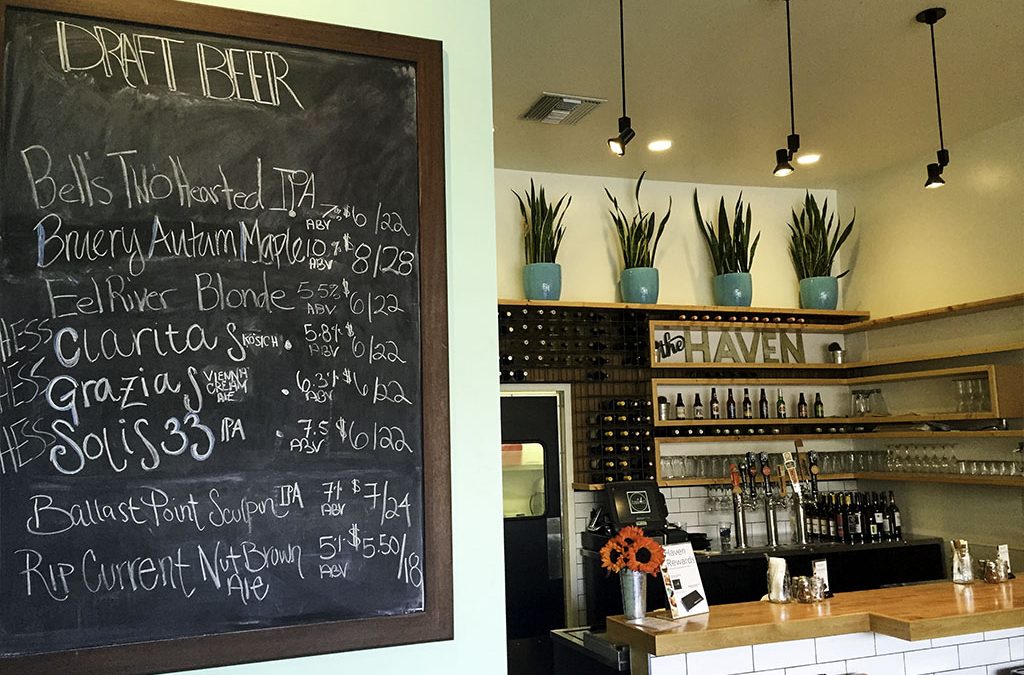 DRAFT BEER
Bell's Two Hearted IPA 7% ABV $6/22
Bruery Autumn Maple 10% ABV $8/28
Eel River Blonde 5.5% ABV $6/22
HESS Clarita KÖSICH 5.8% ABV $6/22
HESS Grazias VIENNA CREAM ALE 6.3% ABV $6/22
HESS Solis 33 IPA 7.5 ABV $6/22
Ballast Point Sculpin IPA 7% ABV $7/24
Rip Current Nut Brown Ale 5% ABV $5.50/18
the HAVEN
Haven
Rewards